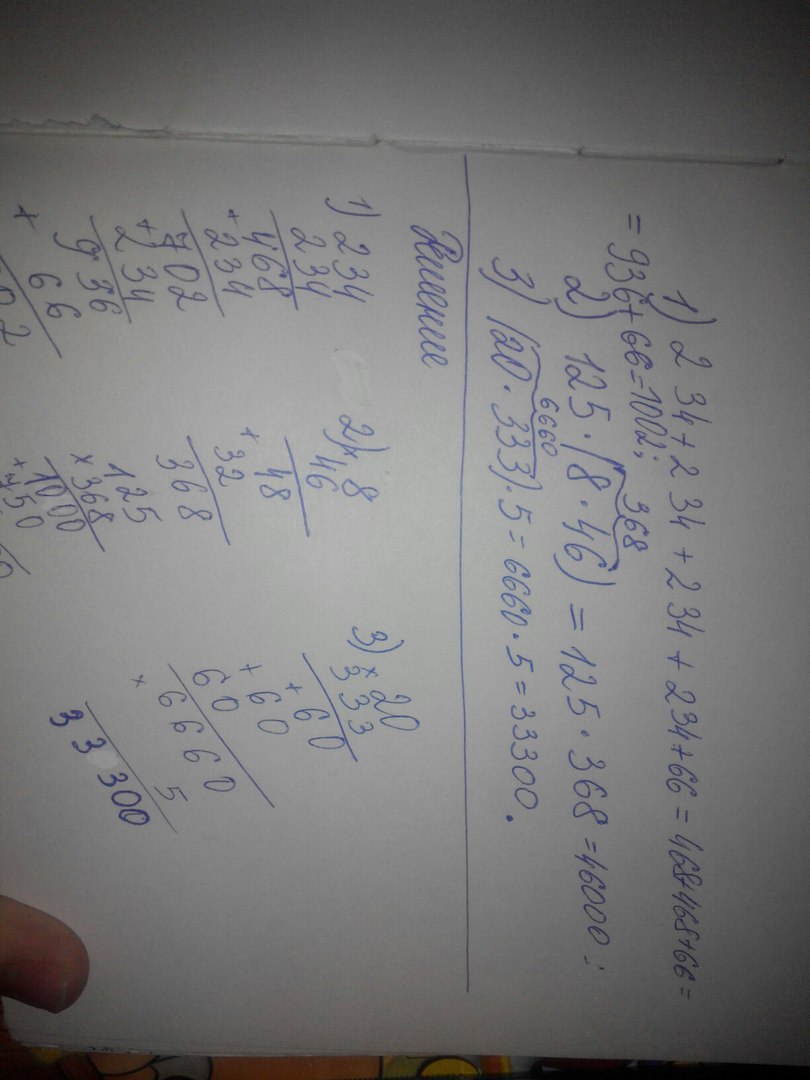 1) 234 + 234 + 234 + 234 + 66 = 468+468+66 =
= 936 + 66 = 1002;
368
2) 125 · (8 · 46) = 125 · 368 = 46000 ;
6660
3) (20 · 333) · 5 = 6660 · 5 = 33300 .
Решение
1) 234
234
468
+ 234
702
+ 234
936
+ 66
2) × 8
46
48
+ 32
368
125
× 368
1000
+ 750
3) × 20
333
60
+ 60
+ 60
6660
× 5
33300